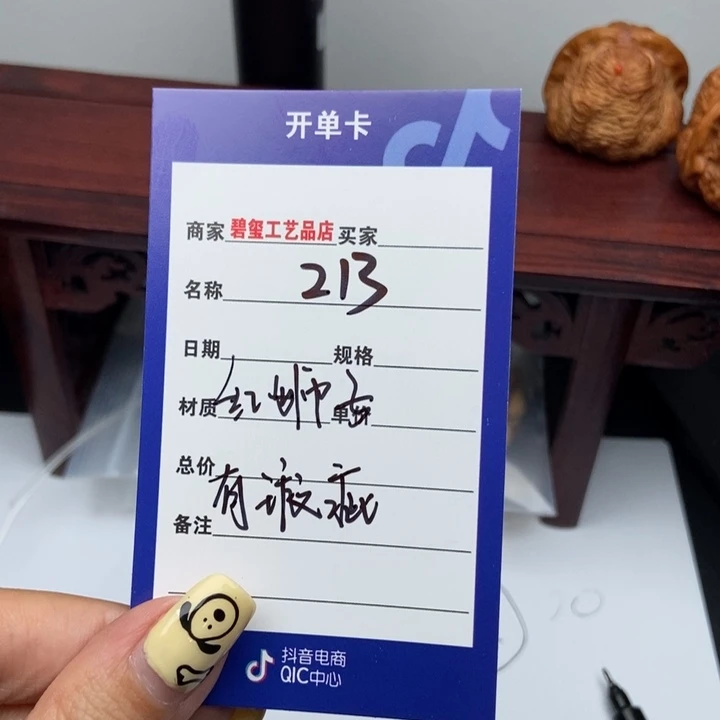 开单卡
商家 碧玺工艺品店 买家
名称 213
日期 规格
材质 红狮头 单价
总价
有瑕疵
备注
抖音电商
QIC中心